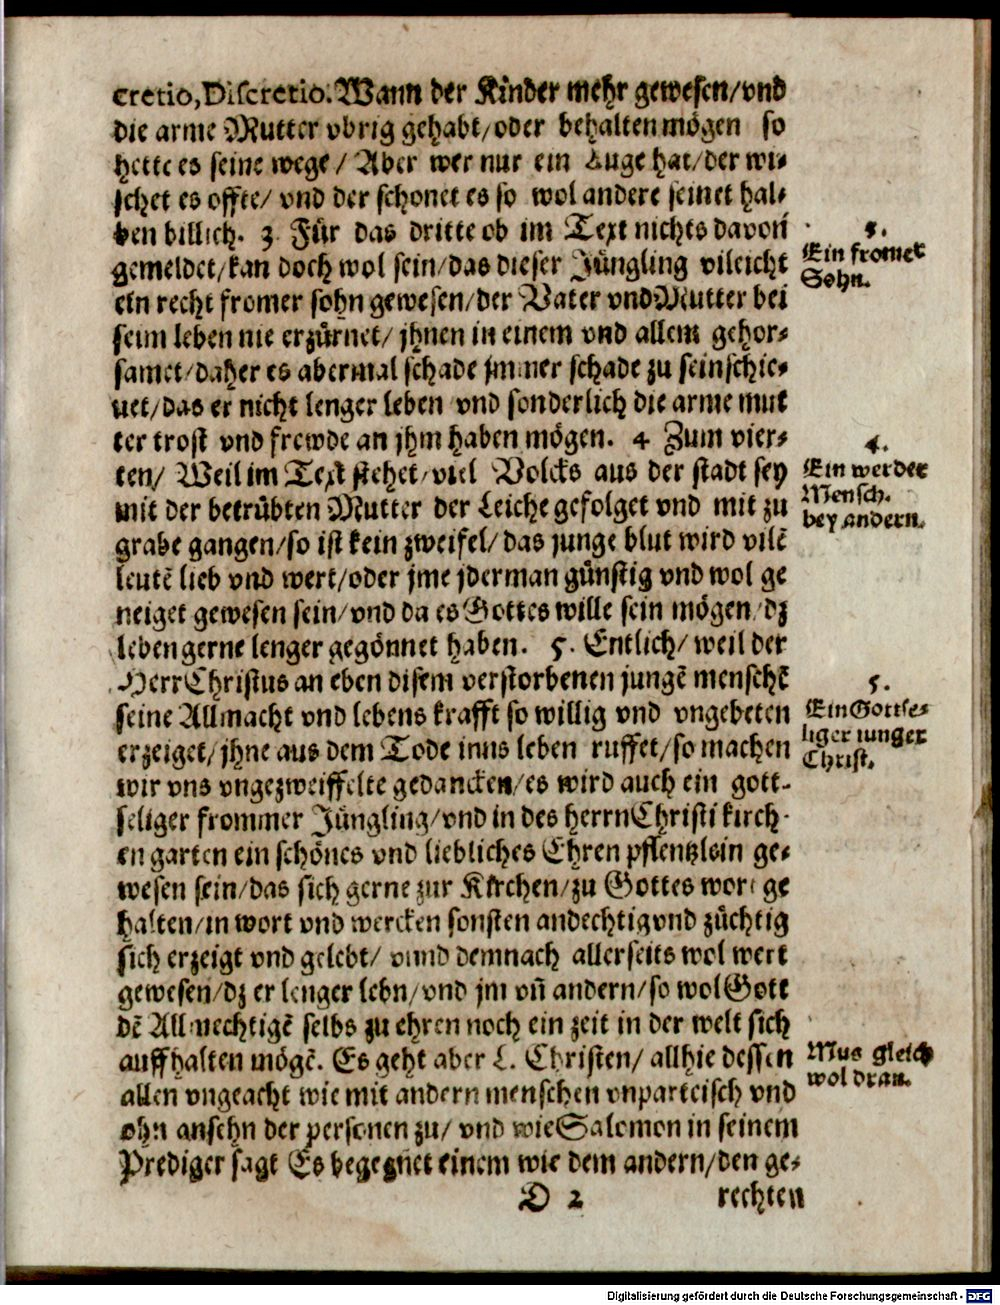 cretio, Discretio. Wann der Kinder mehr gewesen/ vnd
die arme Mutter vbrig gehabt/ oder behalten mögen so
hette es seine wege/ Aber wer nur ein Auge hat/ der wi⸗
schet es offte/ vnd der schonet es so wol andere seinet hal⸗
ben billich. 3. Für das dritte ob im Text nichts davon
gemeldet/ kan doch wol sein/ das dieser Jüngling vileicht
ein recht fromer sohn gewesen/ der Vater vnd Mutter bei
seim leben nie erzürnet/ jhnen in einem vnd allem gehor⸗
samet/ daher es abermal schade jmmer schade zu sein schie⸗
net/ das er nicht lenger leben vnd sonderlich die arme mut
ter trost vnd frewde an jhm haben mögen. 4 Zum vier⸗
ten/ Weil im Text stehet/ viel Volcks aus der stadt sey
mit der betrübten Mutter der Leiche gefolget vnd mit zu
grabe gangen/ so ist kein zweifel/ das junge blut wird vilē
leutē lieb vnd wert/ oder jme jderman günstig vnd wol ge
neiget gewesen sein/ vnd da es Gottes wille sein mögen/ dz
leben gerne lenger gegönnet haben. 5. Entlich/ weil der
Herr Christus an eben disem verstorbenen jungē menschē
seine Allmacht vnd lebens krafft so willig vnd vngebeten
erzeiget/ jhne aus dem Tode inns leben ruffet/ so machen
wir vns vngezweiffelte gedancken/ es wird auch ein gott-
seliger frommer Jüngling/ vnd in des herrn Christi kirch-
en garten ein schönes vnd liebliches Ehren pflentzlein ge⸗
wesen sein/ das sich gerne zur Kirchen/ zu Gottes wort ge
halten/ in wort vnd wercken sonsten andechtig vnd züchtig
sich erzeigt vnd gelebt/ vnnd demnach allerseits wol wert
gewesen/ dz er lenger lebn/ vnd jm vñ andern/ so wol Gott
dē Allmechtigē selbs zu ehren noch ein zeit in der welt sich
auffhalten mögē. Es geht aber L. Christen/ allhie dessen
allen vngeacht wie mit andern menschen vnparteisch vnd
ohn ansehn der personen zu/ vnd wie Salomon in seinem
Prediger sagt Es begegnet einem wie dem andern/ den ge⸗
D 2 rechten
3.
Ein fromer
Sohn.
4.
Ein werder
Mensch.
bey andern.
5.
Ein Gottse⸗
liger iunger
Christ.
Mus gleich
wol dran.
Digitalisierung gefördert durch die Deutsche Forschungsgemeinschaft - DFG